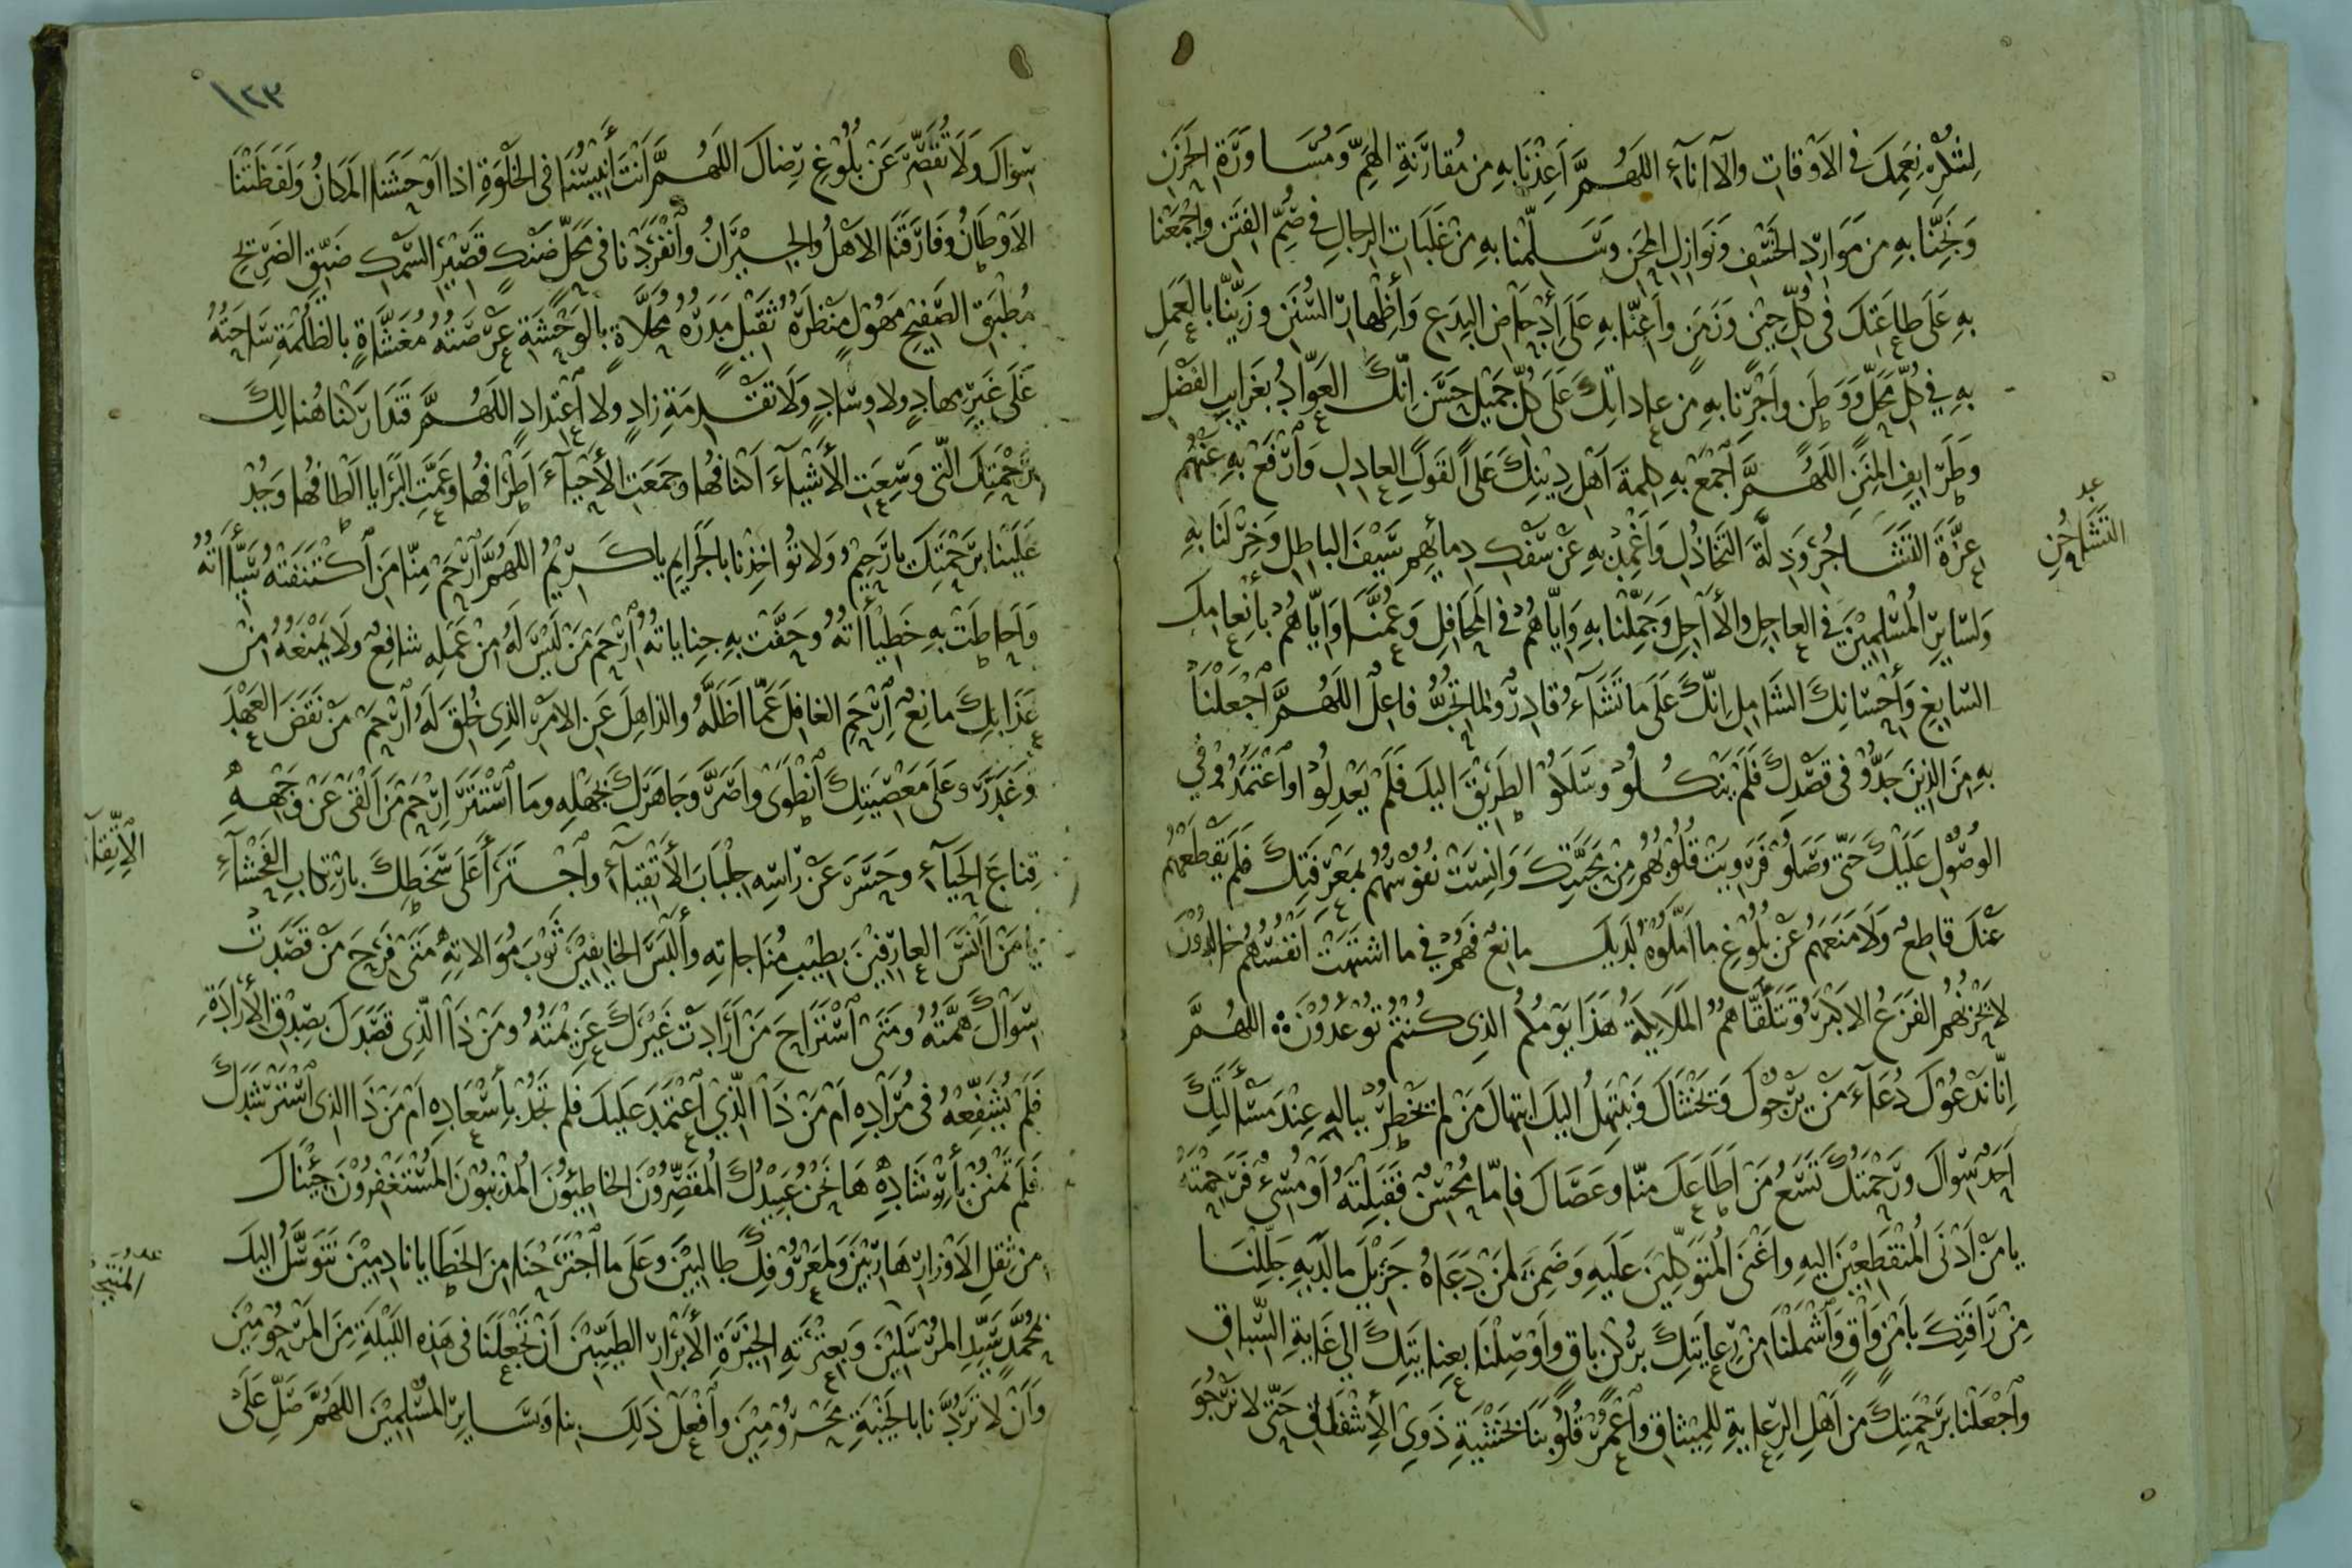 لشكر نعمك في الاوقات والاانآء اللهم اعذنا به من مقارنة الهم ومساورة الحزن
ونجنا به من موارد الخسف ونوازل المحن وسلمنا به من غلبات الرجال في صم الفتن واجمعنا
به على طاعتك في كل حين وزمن واعنا به على أدحاض البدع وأظهار السنن وزينا بالعمل
به في كل محل ووطن واجرنا به من عاداتك على كل جميل حسن انك العواد بغرايب الفضل
وطرايف المنن اللهم اجمع به كلمة اهل دينك على القول العادل وارفع به عنهم
عزة التشاجر وذلة التخاذل واغمد به عن سفك دمائهم سيف الباطل وخر لنا به
ولساير المسلمين في العاجل والأاجل وجملنا به واياهم في المحافل وعمنا واياهم بأنعامك
السابغ وأحسانك الشامل انك على ما تشآء قادر ولما تحب فاعل اللهم اجعلنا
به من الذين جدو في قصدك فلم ينكلو وسلكو الطريق اليك فلم يعدلوا واعتمدو في
الوصول عليك حتى وصلو فرويت قلوبهم من محبتك وانست نفوسهم بمعرفتك فلم يقطعهم
عنك قاطع ولا منعهم عن بلوغ ما املوه لديك مانع فهم في ما اشتهت انفسهم خالدون
لا يحزنهم الفزع الاكبر وتتلقاهم الملايكة هذا يومكم الذي كنتم توعدون اللهم
انا ندعوك دعآء من يرجوك ويخشاك ونبتهل اليك ابتهال من لم يخطر بباله عند مسألتك
احد سواك ورحمتك تسع من اطاعك منا وعصاك فاما محسن فقبلته او مسيء فرحمته
يا من ادنى المنقطعين اليه واغنى المتوكلين عليه وضمن لمن دعاه جزيل ما لديه جللنا
من رافتك بامن واق واشملنا من رعايتك بركن باق واوصلنا بعنايتك الى غاية السباق
واجعلنا برحمتك من اهل الرعاية للميثاق واعمر قلوبنا بخشية ذوي الأشفاق حتى لا نرجو
التشاحن
١٢٣
سواك ولا نقصر عن بلوغ رضاك اللهم انت أنيسنا في الخلوة اذا اوحشنا المكان ولفظتنا
الاوطان وفارقنا الاهل والجيران وانفردنا في محل ضنك قصير السمك ضيق الضريح
مطبق الصفيح مهول منظره ثقيل مدره محلاة بالوحشة عرصته مغشاة بالظلمة ساحته
على غير مهاد ولا وساد ولا تقدمة زاد ولا اعتداد اللهم فتداركنا هنالك
برحمتك التي وسعت الأشيآء اكنافها وجمعت الأحيآء اطرافها وعمت البرايا الطافها وجد
علينا برحمتك يا رحيم ولا تؤاخذنا بالجرايم يا كريم اللهم ارحم منا من اكتنفته سيأاته
واحاطت به خطيأاته وحفت به جناياته ارحم من ليس له من عمله شافع ولا يمنعه من
عذابك مانع ارحم الغافل عما اظله والذاهل عن الامر الذي خلق له ارحم من نقض العهد
وغدر وعلى معصيتك انطوى واصر وجاهرك بجهله وما استتر ارحم من القى عن وجهه
قناع الحيآء وحسر عن راسه جلباب الأتقيآء واجترأ على سخطك بارتكاب الفحشآء
يا من انس العارفين بطيب مناجاته وألبس الخايفين ثوب موالاته متى فرح من قصدت
سواك همته ومتى استراح من ارادت غيرك عزيمته ومن ذا الذي قصدك بصدق الأرادة
فلم تشفعه في مراده ام من ذا الذي اعتمد عليك فلم تجد بأسعاده ام من ذا الذي استرشدك
فلم تمنن بأرشاده ها نحن عبيدك المقصرون الخاطئون المذنبون المستغفرون جيناك
من ثقل الاوزار هاربين ولمعروفك طالبين وعلى ما اجترحنا من الخطايا نادمين نتوسل اليك
بمحمد سيد المرسلين وبعترته الخيرة الأبرار الطيبين ان تجعلنا في هذه الليلة من المرحومين
وان لا تردنا بالخيبة محرومين وافعل ذلك بنا وساير المسلمين اللهم صل على